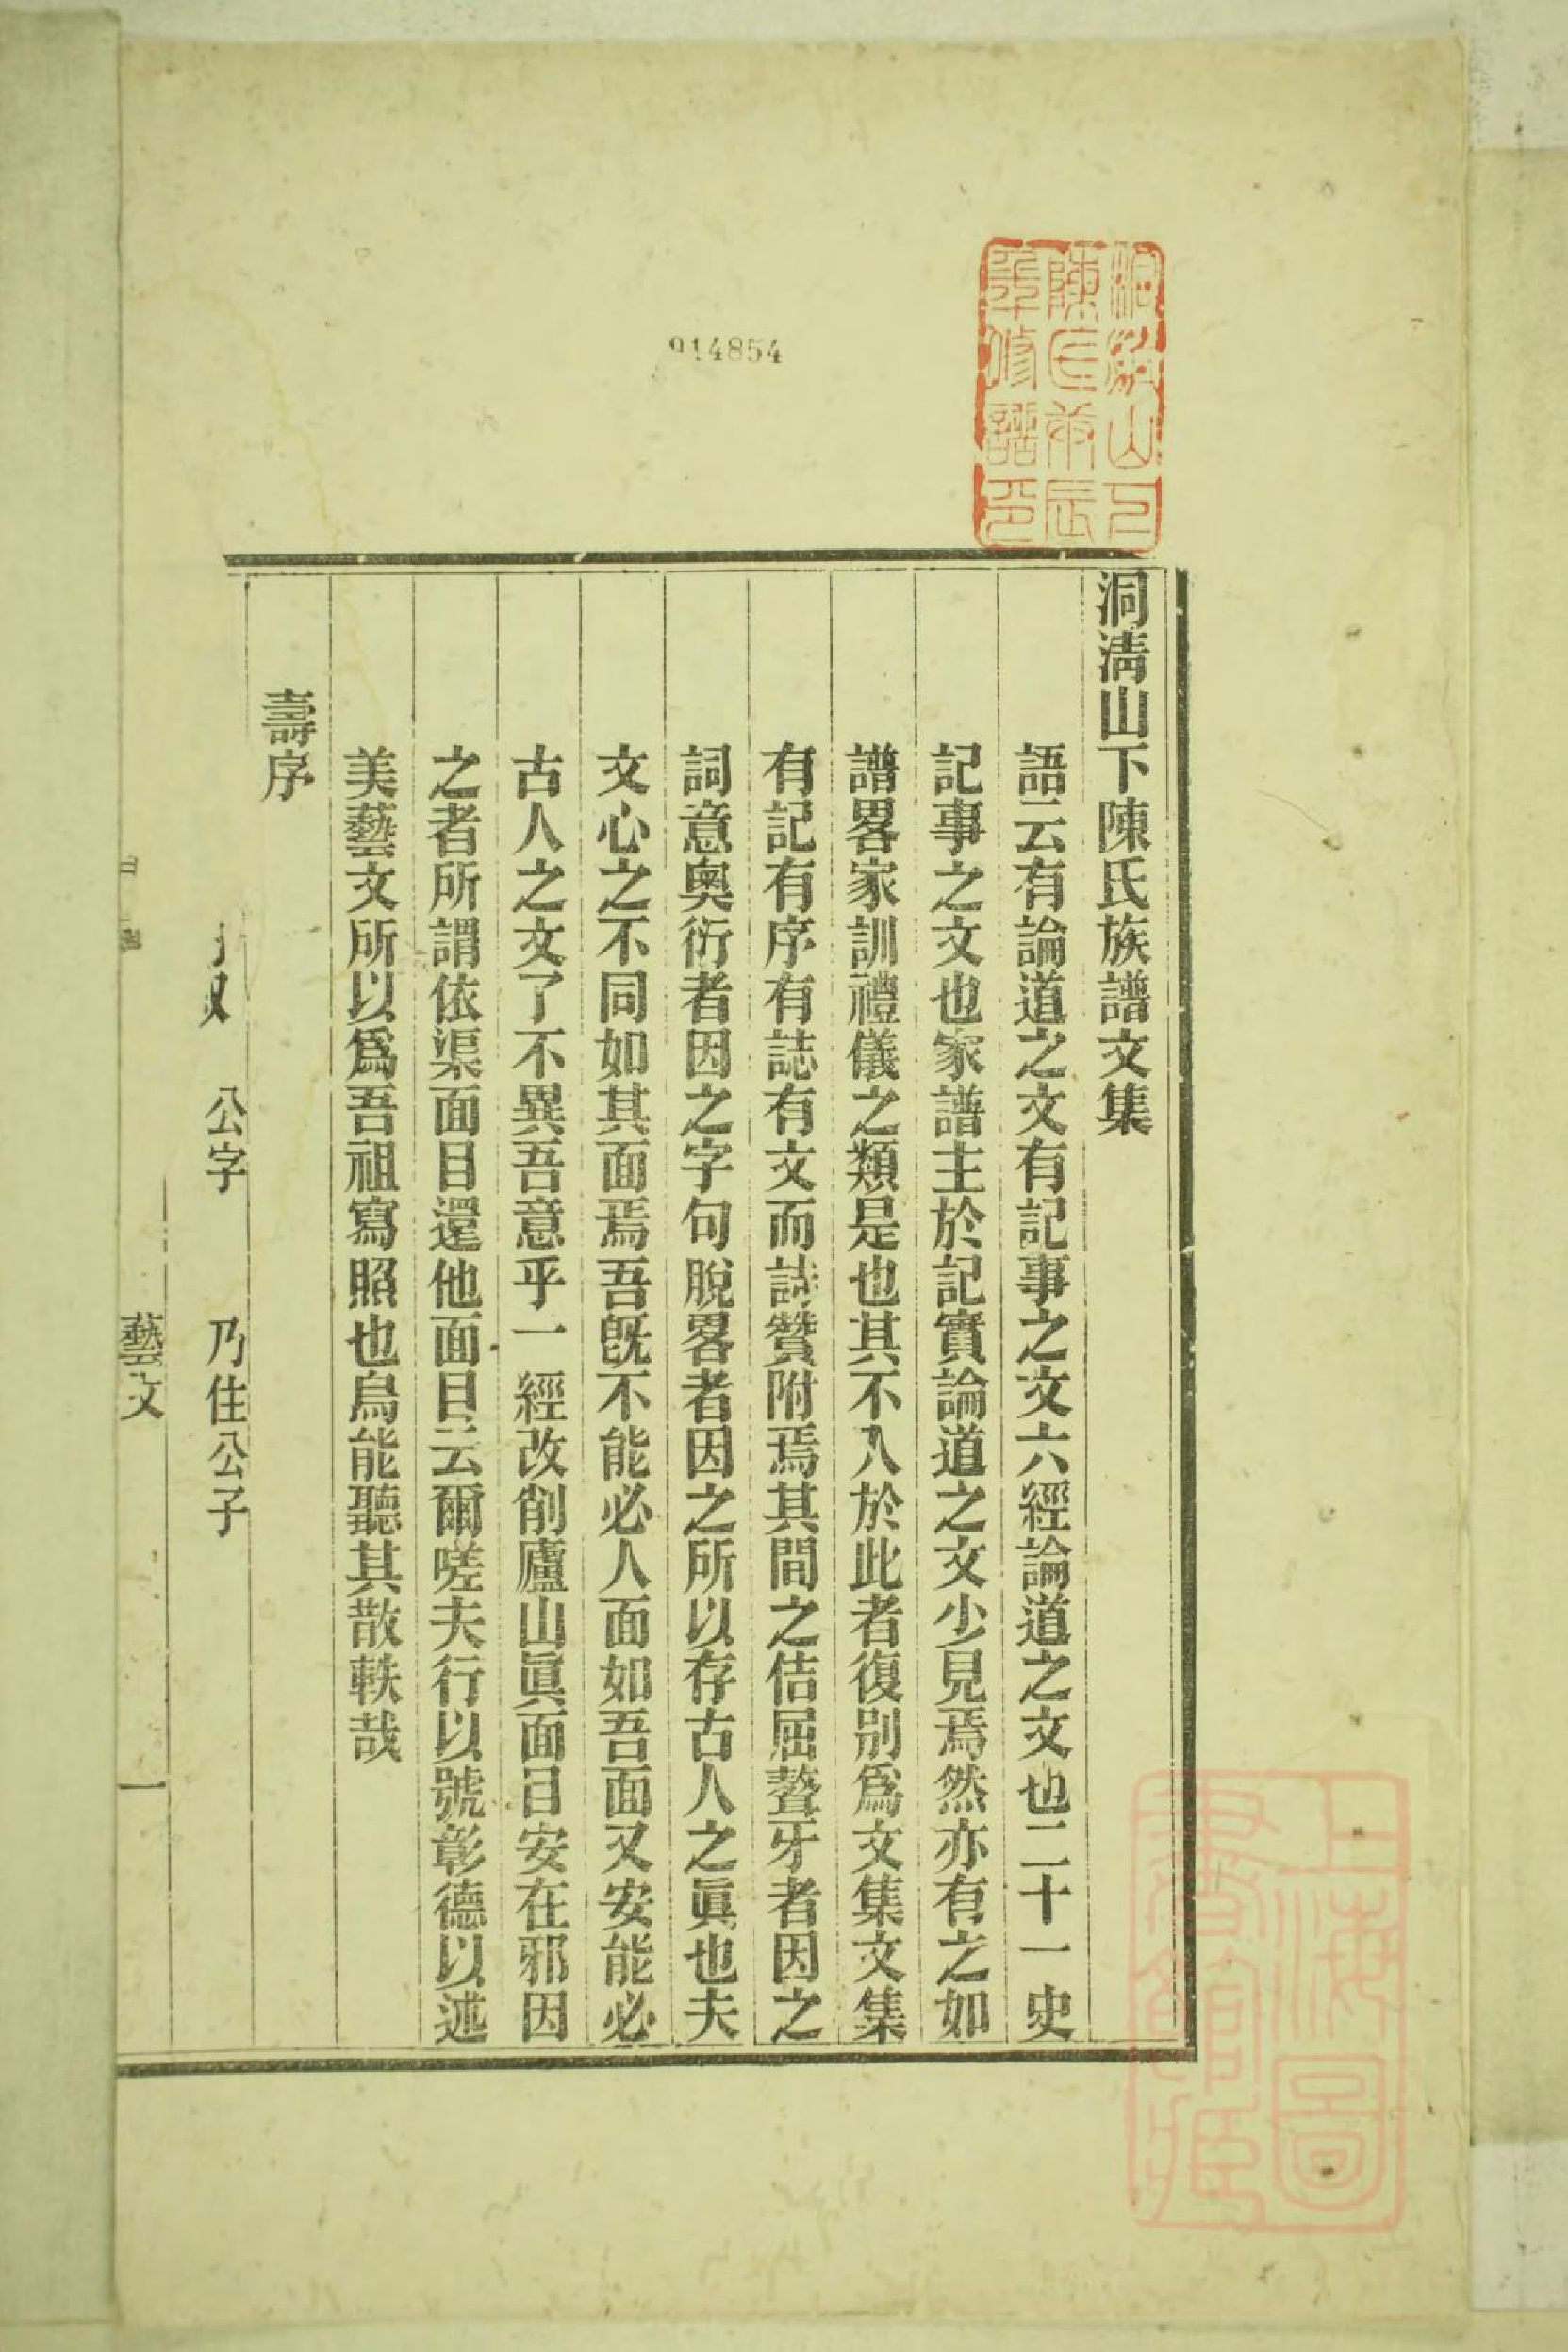 914854
洞淸山下陳氏族譜文集
語云有論道之文有記事之文六經論道之文也二十一史
記事之文也家譜主於記實論道之文少見焉然亦有之如
譜畧家訓禮儀之類是也其不入於此者復別爲文集文集
有記有序有誌有文而詩贊附焉其間之佶屈聱牙者因之
詞意奧衍者因之字句脫畧者因之所以存古人之眞也夫
文心之不同如其面焉吾旣不能必人面如吾面又安能必
古人之文了不異吾意乎一經改削廬山眞面目安在邪因
之者所謂依渠面目還他面目云爾嗟夫行以號彰德以述
美藝文所以爲吾祖寫照也烏能聽其散軼哉
壽序
公字 乃住公子
藝文 一
上海圖書館藏